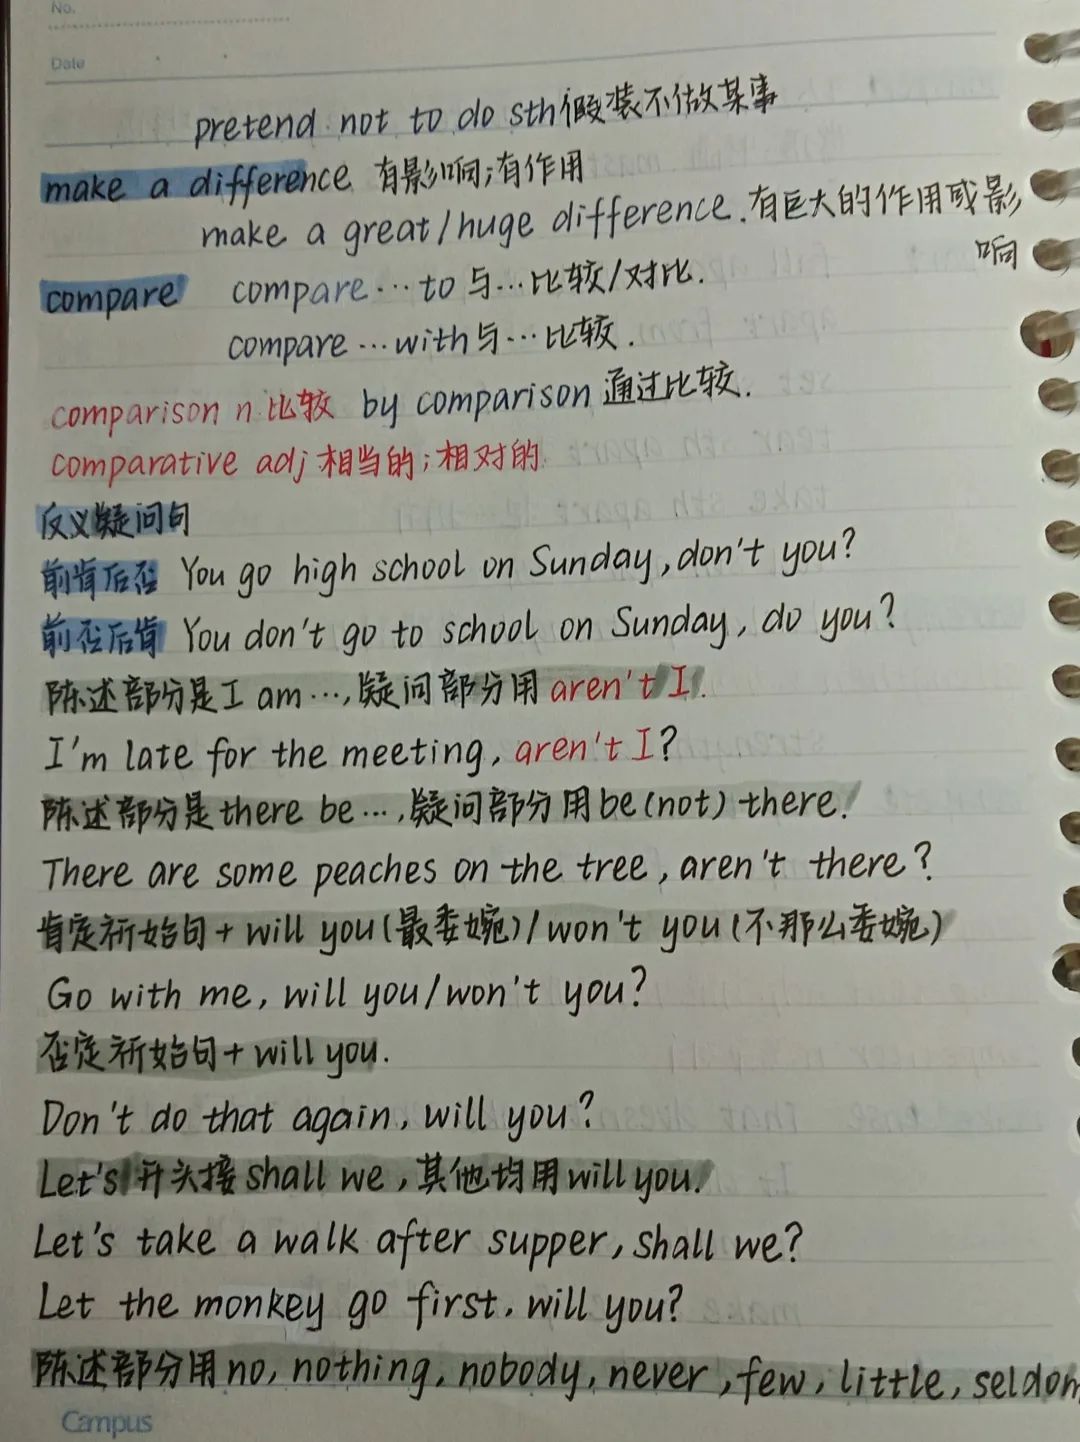 No.
Date
pretend not to do sth 假装不做某事
make a difference 有影响;有作用
make a great/huge difference. 有巨大的作用或影
响
compare compare…to 与…比较/对比.
compare…with 与…比较.
comparison n 比较 by comparison 通过比较.
comparative adj 相当的;相对的.
反义疑问句
前肯后否 You go high school on Sunday, don't you?
前否后肯 You don't go to school on Sunday, do you?
陈述部分是I am…,疑问部分用 aren't I.
I'm late for the meeting, aren't I?
陈述部分是there be…,疑问部分用be(not) there.
There are some peaches on the tree, aren't there?
肯定祈始句+ will you(最委婉)/won't you(不那么委婉)
Go with me, will you/won't you?
否定祈始句+will you.
Don't do that again, will you?
Let's开头接shall we,其他均用will you.
Let's take a walk after supper, shall we?
Let the monkey go first, will you?
陈述部分用no, nothing, nobody, never, few, little, seldom
Campus